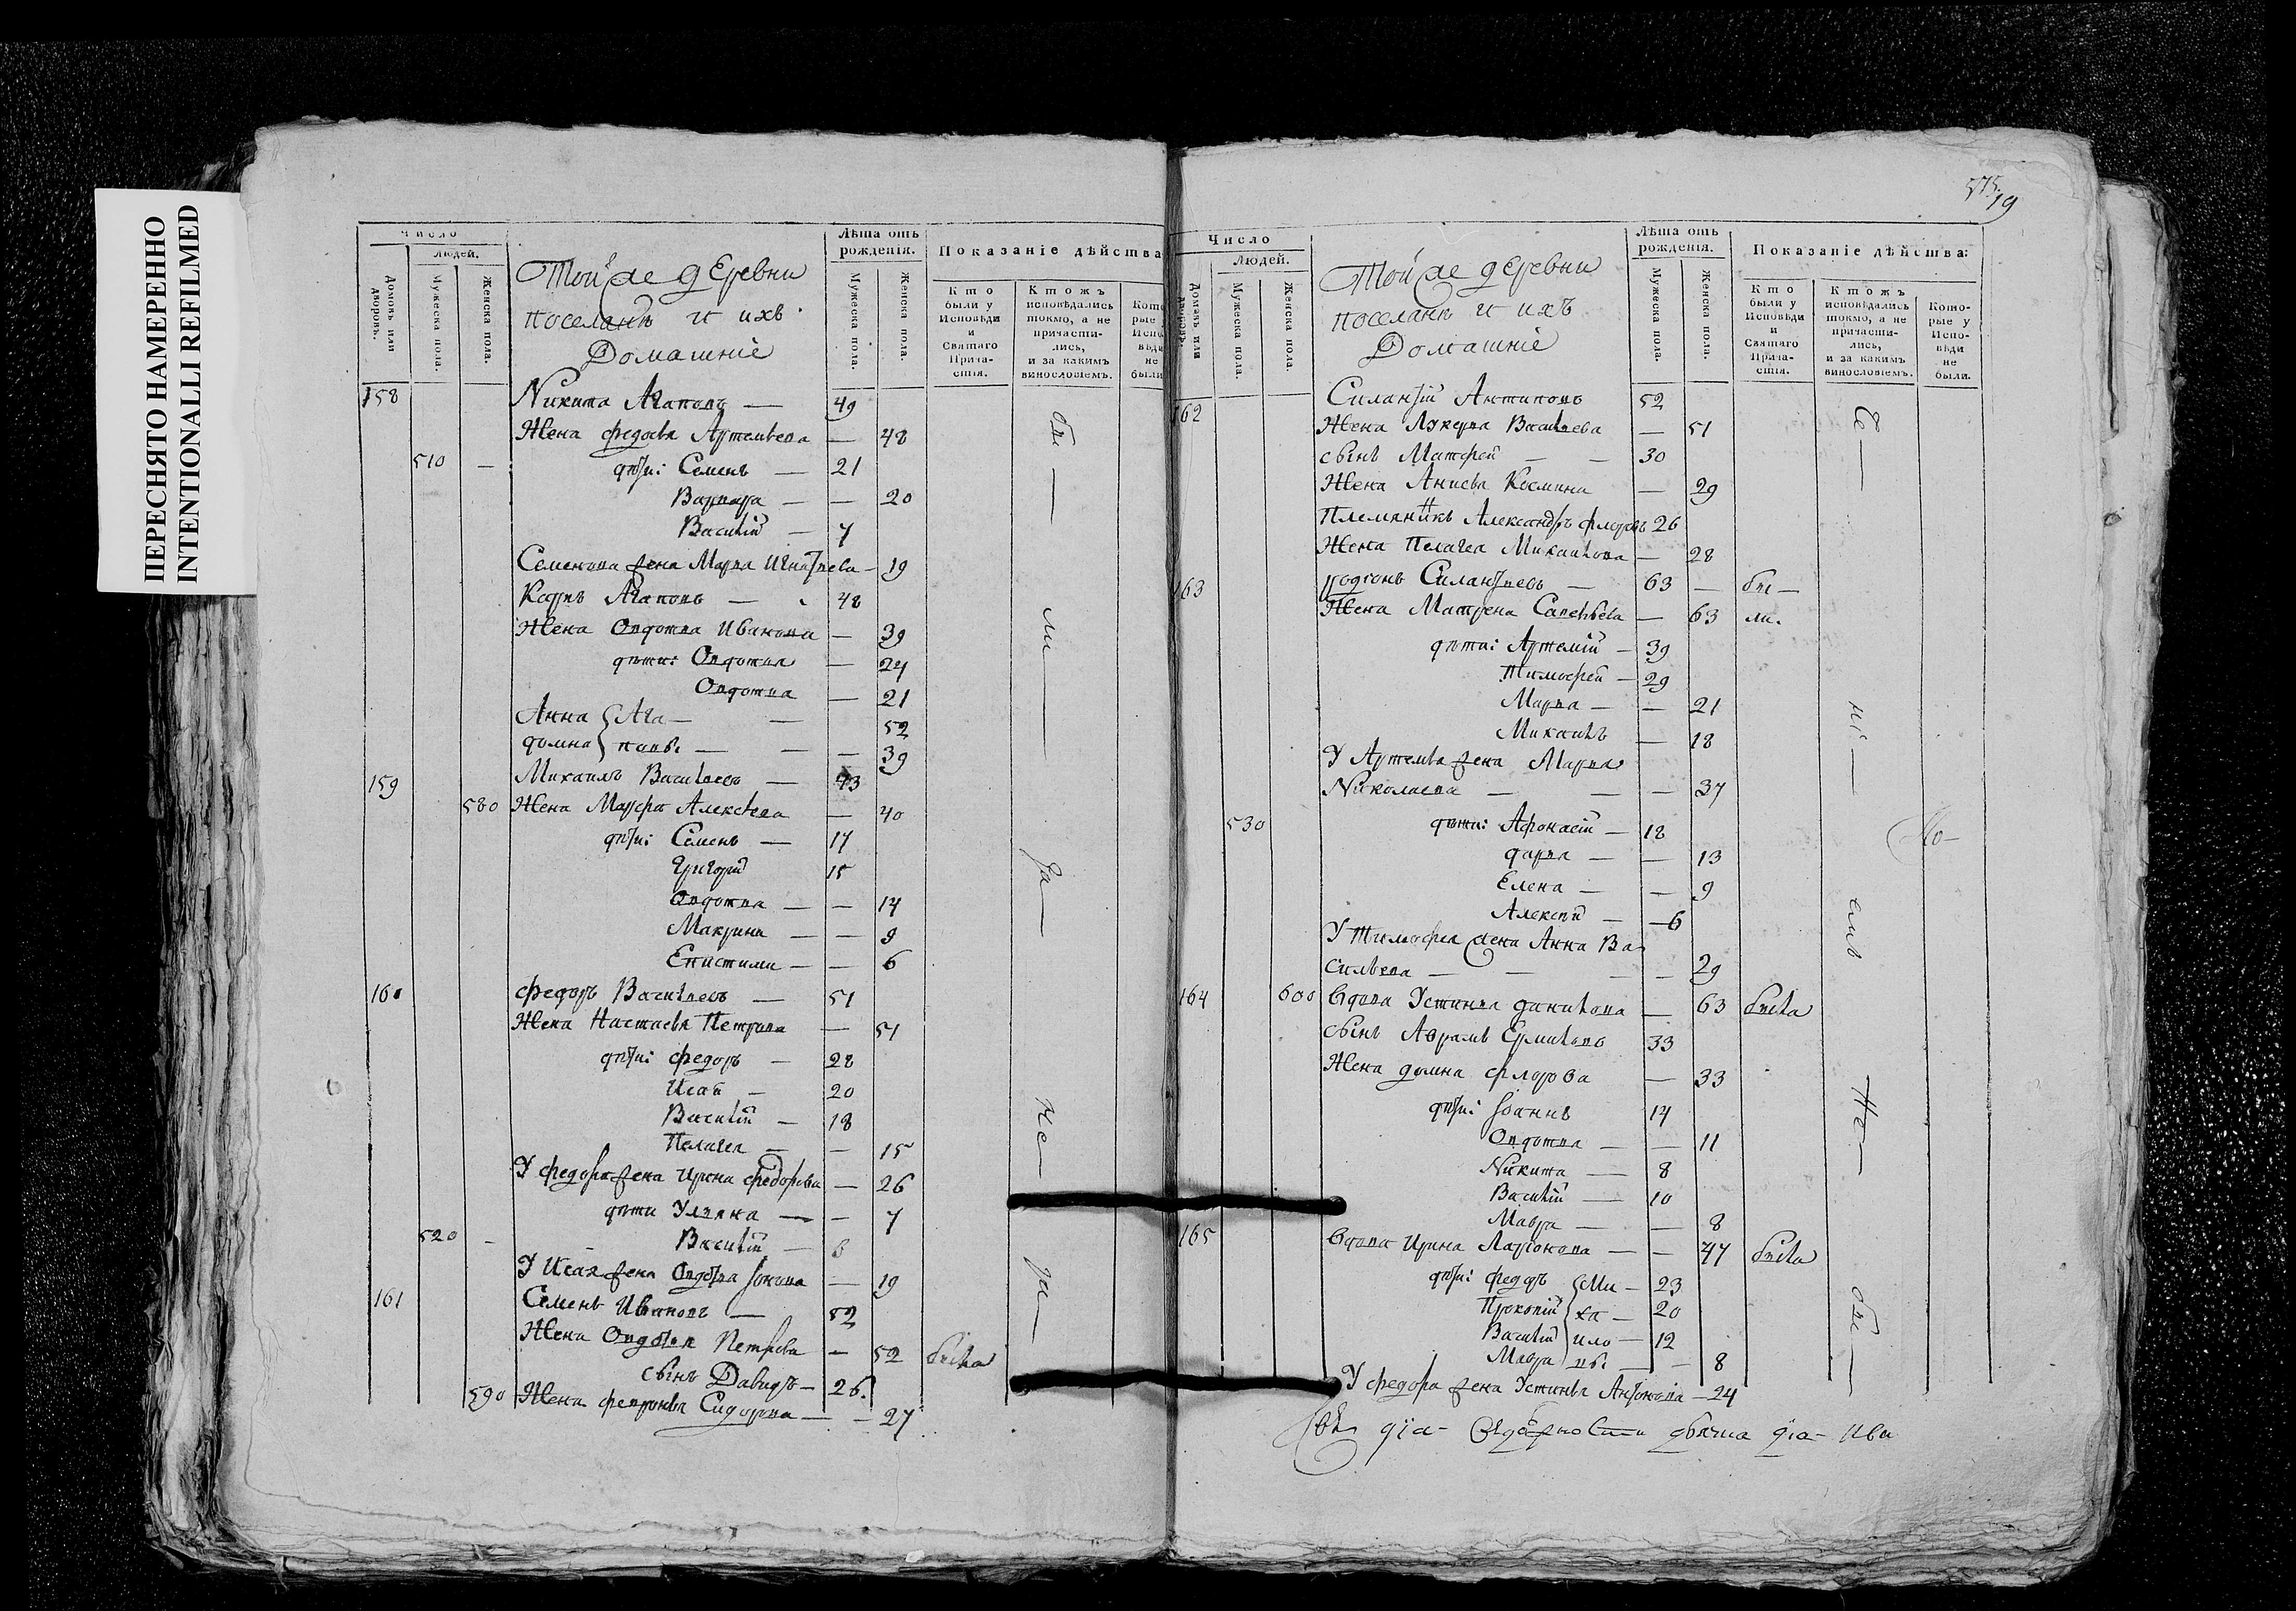 ПЕРЕСНЯТО НАМЕРЕННО
INTENTIONALLI REFILMED
Число
Людей.
Домовъ или дворовъ.
Мужеска пола.
Женска пола.
Той же деревни
поселянъ и ихъ
Домашніе
Лѣта отъ рожденія.
Мужеска пола.
Женска пола.
Показаніе дѣйства
Кто были у Исповѣди и Святаго Причастія.
Ктожъ исповѣдались токмо, а не причастились, и за какимъ винословіемъ.
158 Никита Агаповъ — 49
Жена Федосья Артемьева — 48
510 — дѣти: Семенъ — 21
Варвара — — 20
Василій — 7
Семенова жена Марья Игнатьева — 19
Карпъ Агаповъ — 48
Жена Овдотья Иванова — 39
дѣти: Овдотья — 24
Овдотья — 21
Анна { Ага — — 52
Домна } повы — — — 39
159 Михаилъ Васильевъ — 43
580 Жена Марфа Алексѣева — 40
дѣти: Семенъ — 17
Григорій 15
Овдотья — — 14
Макрина — — 9
Епистимия — — 6
160 Федоръ Васильевъ — 51
Жена Настасья Петрова — 51
дѣти: Федоръ — 28
Исай — 20
Василій — 18
Пелагея — — 15
У Федора жена Ирина Федорова — 26
дѣти Ульяна — — 7
520 — Василій — 6
У Исая жена Овдотья Іонова — 19
161 Семенъ Ивановъ — 52
Жена Овдотья Петрова — 52 была
сынъ Давидъ — 26.
590 Жена Феврония Сидорова — — 27
бы — ли — за — не — за —
575.
19
Число
Людей.
Домовъ или дворовъ.
Мужеска пола.
Женска пола.
Той же деревни
поселянъ и ихъ
Домашніе
Лѣта отъ рожденія.
Мужеска пола.
Женска пола.
Показаніе дѣйства:
Кто были у Исповѣди и Святаго Причастія.
Ктожъ исповѣдались токмо, а не причастились, и за какимъ винословіемъ.
Которые у Исповѣди не были.
162 Силантій Антиповъ 52
Жена Лукерья Васильева — 51
сынъ Матфей — — 30
Жена Анисья Космина — 29
Племянникъ Александръ Флоровъ 26
Жена Пелагея Михайлова — 28
163 Родіонъ Силантьевъ — 63 — бы —
Жена Матрена Савельева — 63 ли.
дѣти: Артемій — 39
Тимофей — 29
Марья — — 21
Михаилъ — 18
У Артемья жена Марья
Николаева — — — 37
530 дѣти: Афонасій — 18
Дарья — — 13
Елена — — 9
Алексѣй — — 6
У Тимофея жена Анна Ва
сильева — — — — 29
164 600 Вдова Устинья Данилова — 63 была
сынъ Аврамъ Ермиловъ 33
Жена Домна Флорова — 33
дѣти: Іоаннъ 14
Овдотья — — 11
Никита — 8
Василій — 10
Мавра — — 8
165 Вдова Ирина Ларіонова — — 47 была
дѣти: Федоръ { Ми — 23
Прокопій { ха — 20
Василій } йло — 12
Мавра } вы — — 8
У Федора жена Устинья Антонова — 24